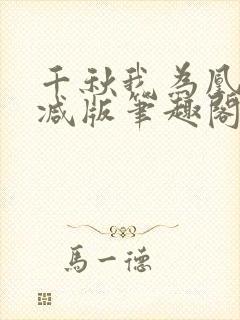 千秋我为凰
减版筆趣閣
馬一德